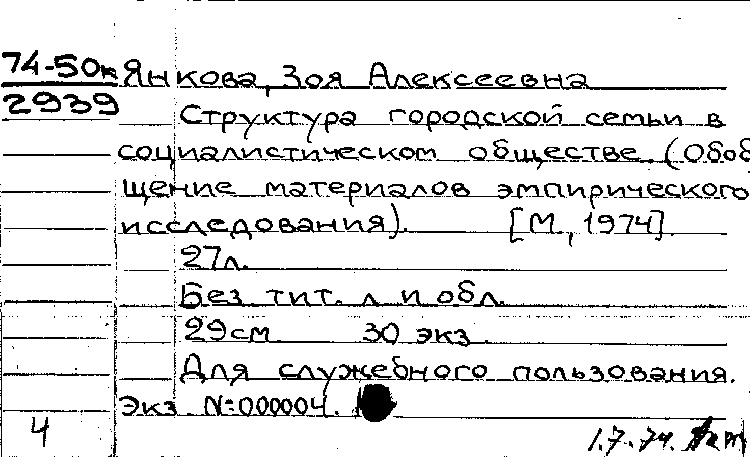 74-50к Янкова, Зоя Алексеевна
2939
Структура городской семьи в
социалистическом обществе. (Обоб
щение материалов эмпирического
исследования). [М., 1974].
27л.
Без тит. л и обл.
29см 30 экз.
Для служебного пользования.
Экз №000004.
4
1.7.74.